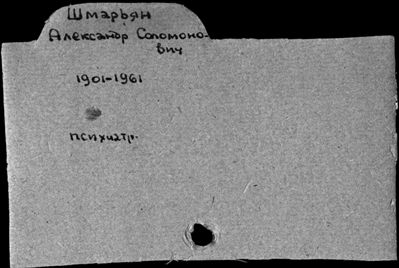 Шмарьян
Александр Соломоно-
вич
1901-1961
психиатр.